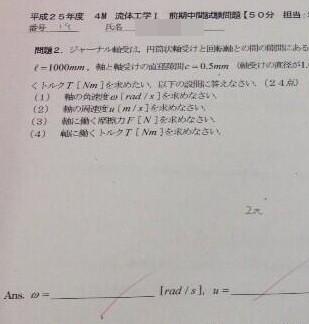 平成25年度 4M 流体工学I 前期中間試験問題【50分 担当:
番号 氏名
問題2. ジャーナル軸受は、円筒状軸受けと回転軸との間の隙間にある
ℓ=1000mm、軸と軸受けの直径隙間c=0.5mm (軸受けの直径が1.
くトルクT [Nm] を求めたい。以下の設問に答えなさい。(24点)
(1) 軸の角速度ω [rad/s] を求めなさい。
(2) 軸の周速度u [m/s] を求めなさい。
(3) 軸に働く摩擦力F [N] を求めなさい。
(4) 軸に働くトルクT [Nm] を求めなさい。
2π
Ans. ω= [rad/s], u=